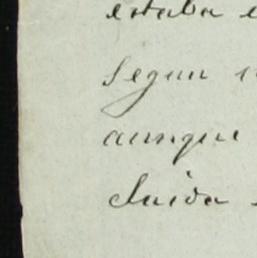 estaba
segun
aunque
cluida